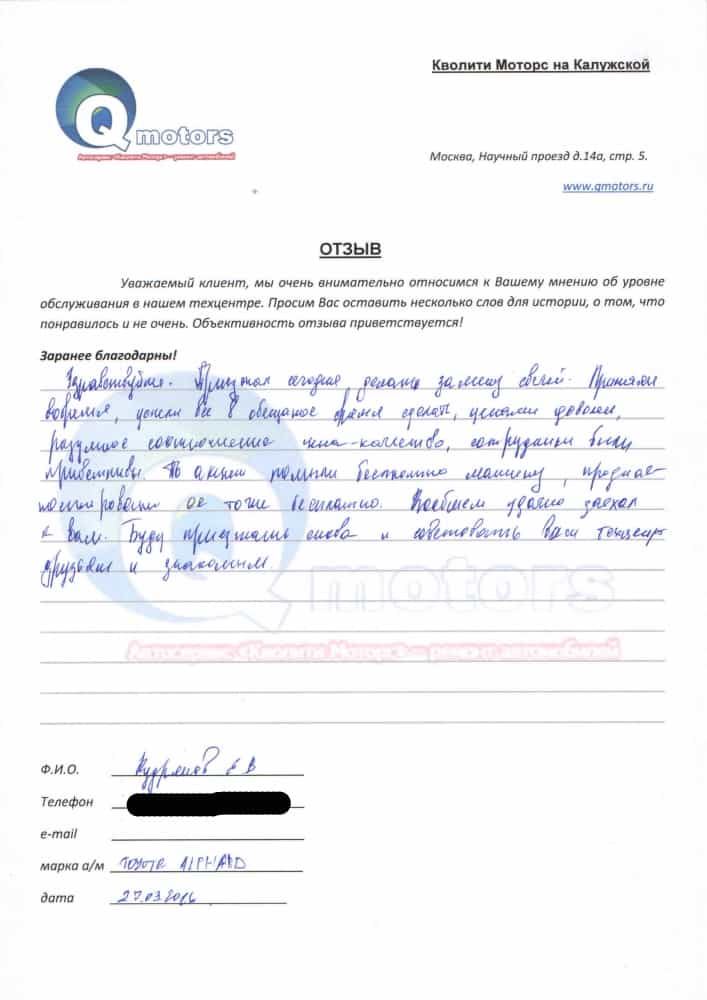 Кволити Моторс на Калужской
Q motors
Автосервис «Кволити Моторс» — ремонт автомобилей
Москва, Научный проезд д.14а, стр. 5.
www.qmotors.ru
ОТЗЫВ
Уважаемый клиент, мы очень внимательно относимся к Вашему мнению об уровне
обслуживания в нашем техцентре. Просим Вас оставить несколько слов для истории, о том, что
понравилось и не очень. Объективность отзыва приветствуется!
Заранее благодарны!
Здравствуйте. Приезжал сегодня делать замену свечей. Приняли
вовремя, успели все в обещаное время сделать, ценами доволен,
разумное соотношение цена-качество, сотрудники были
приветливы. По акции помыли бесплатно машину, продиаг-
ностировали ее тоже бесплатно. Вообщем удачно заехал
к вам. Буду приезжать снова и советовать Ваш техцентр
друзьям и знакомым.
Q motors
Автосервис «Кволити Моторс» — ремонт автомобилей
Ф.И.О. Кудряшов В
Телефон
e-mail
марка а/м TOYOTA ALPHARD
дата 27.03.2016